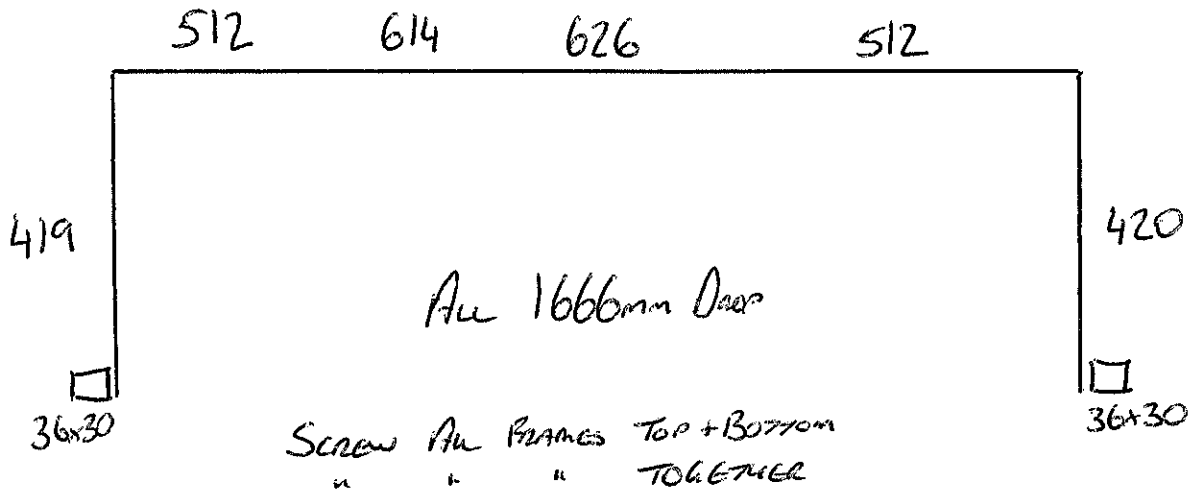 512 614 626 512
419 420
All 1666mm Drop
36x30 36x30
Screw All Frames Top + Bottom
" " " TOGETHER